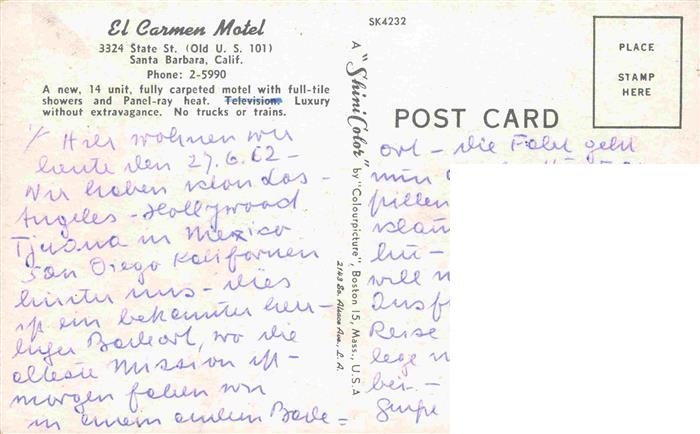 El Carmen Motel
3324 State St. (Old U. S. 101)
Santa Barbara, Calif.
Phone: 2-5990
A new, 14 unit, fully carpeted motel with full-tile
showers and Panel-ray heat. Television. Luxury
without extravagance. No trucks or trains.
1/ Hier wohnen wir
heute den 27.6.62 -
Wir haben schon Los -
Angeles - Hollywood
Tjuana in Mexico
San Diego Kalifornien
hinter uns - dies
ist ein bekannter herr-
liger Badeort, wo die
älteste Mission ist -
morgen fahren wir
in einem andern Bade =
SK4232
A "ShiniColor" by "Colourpicture", Boston 15, Mass., U.S.A
2143 So. Alsace Ave., L. A.
POST CARD
PLACE
STAMP
HERE
ort - die Fahrt geht
nun
hin -
will
Ausf
Reise
lege
bei. -